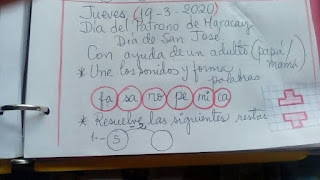 Jueves (19-3-2020)
Día del Patrono de Maracay
Día de San José
Con ayuda de un adulto (papá/
mamá)
* Une los sonidos y forma
palabras
fa sa ro pe mi ca
* Resuelve las siguientes restas
1.- 5